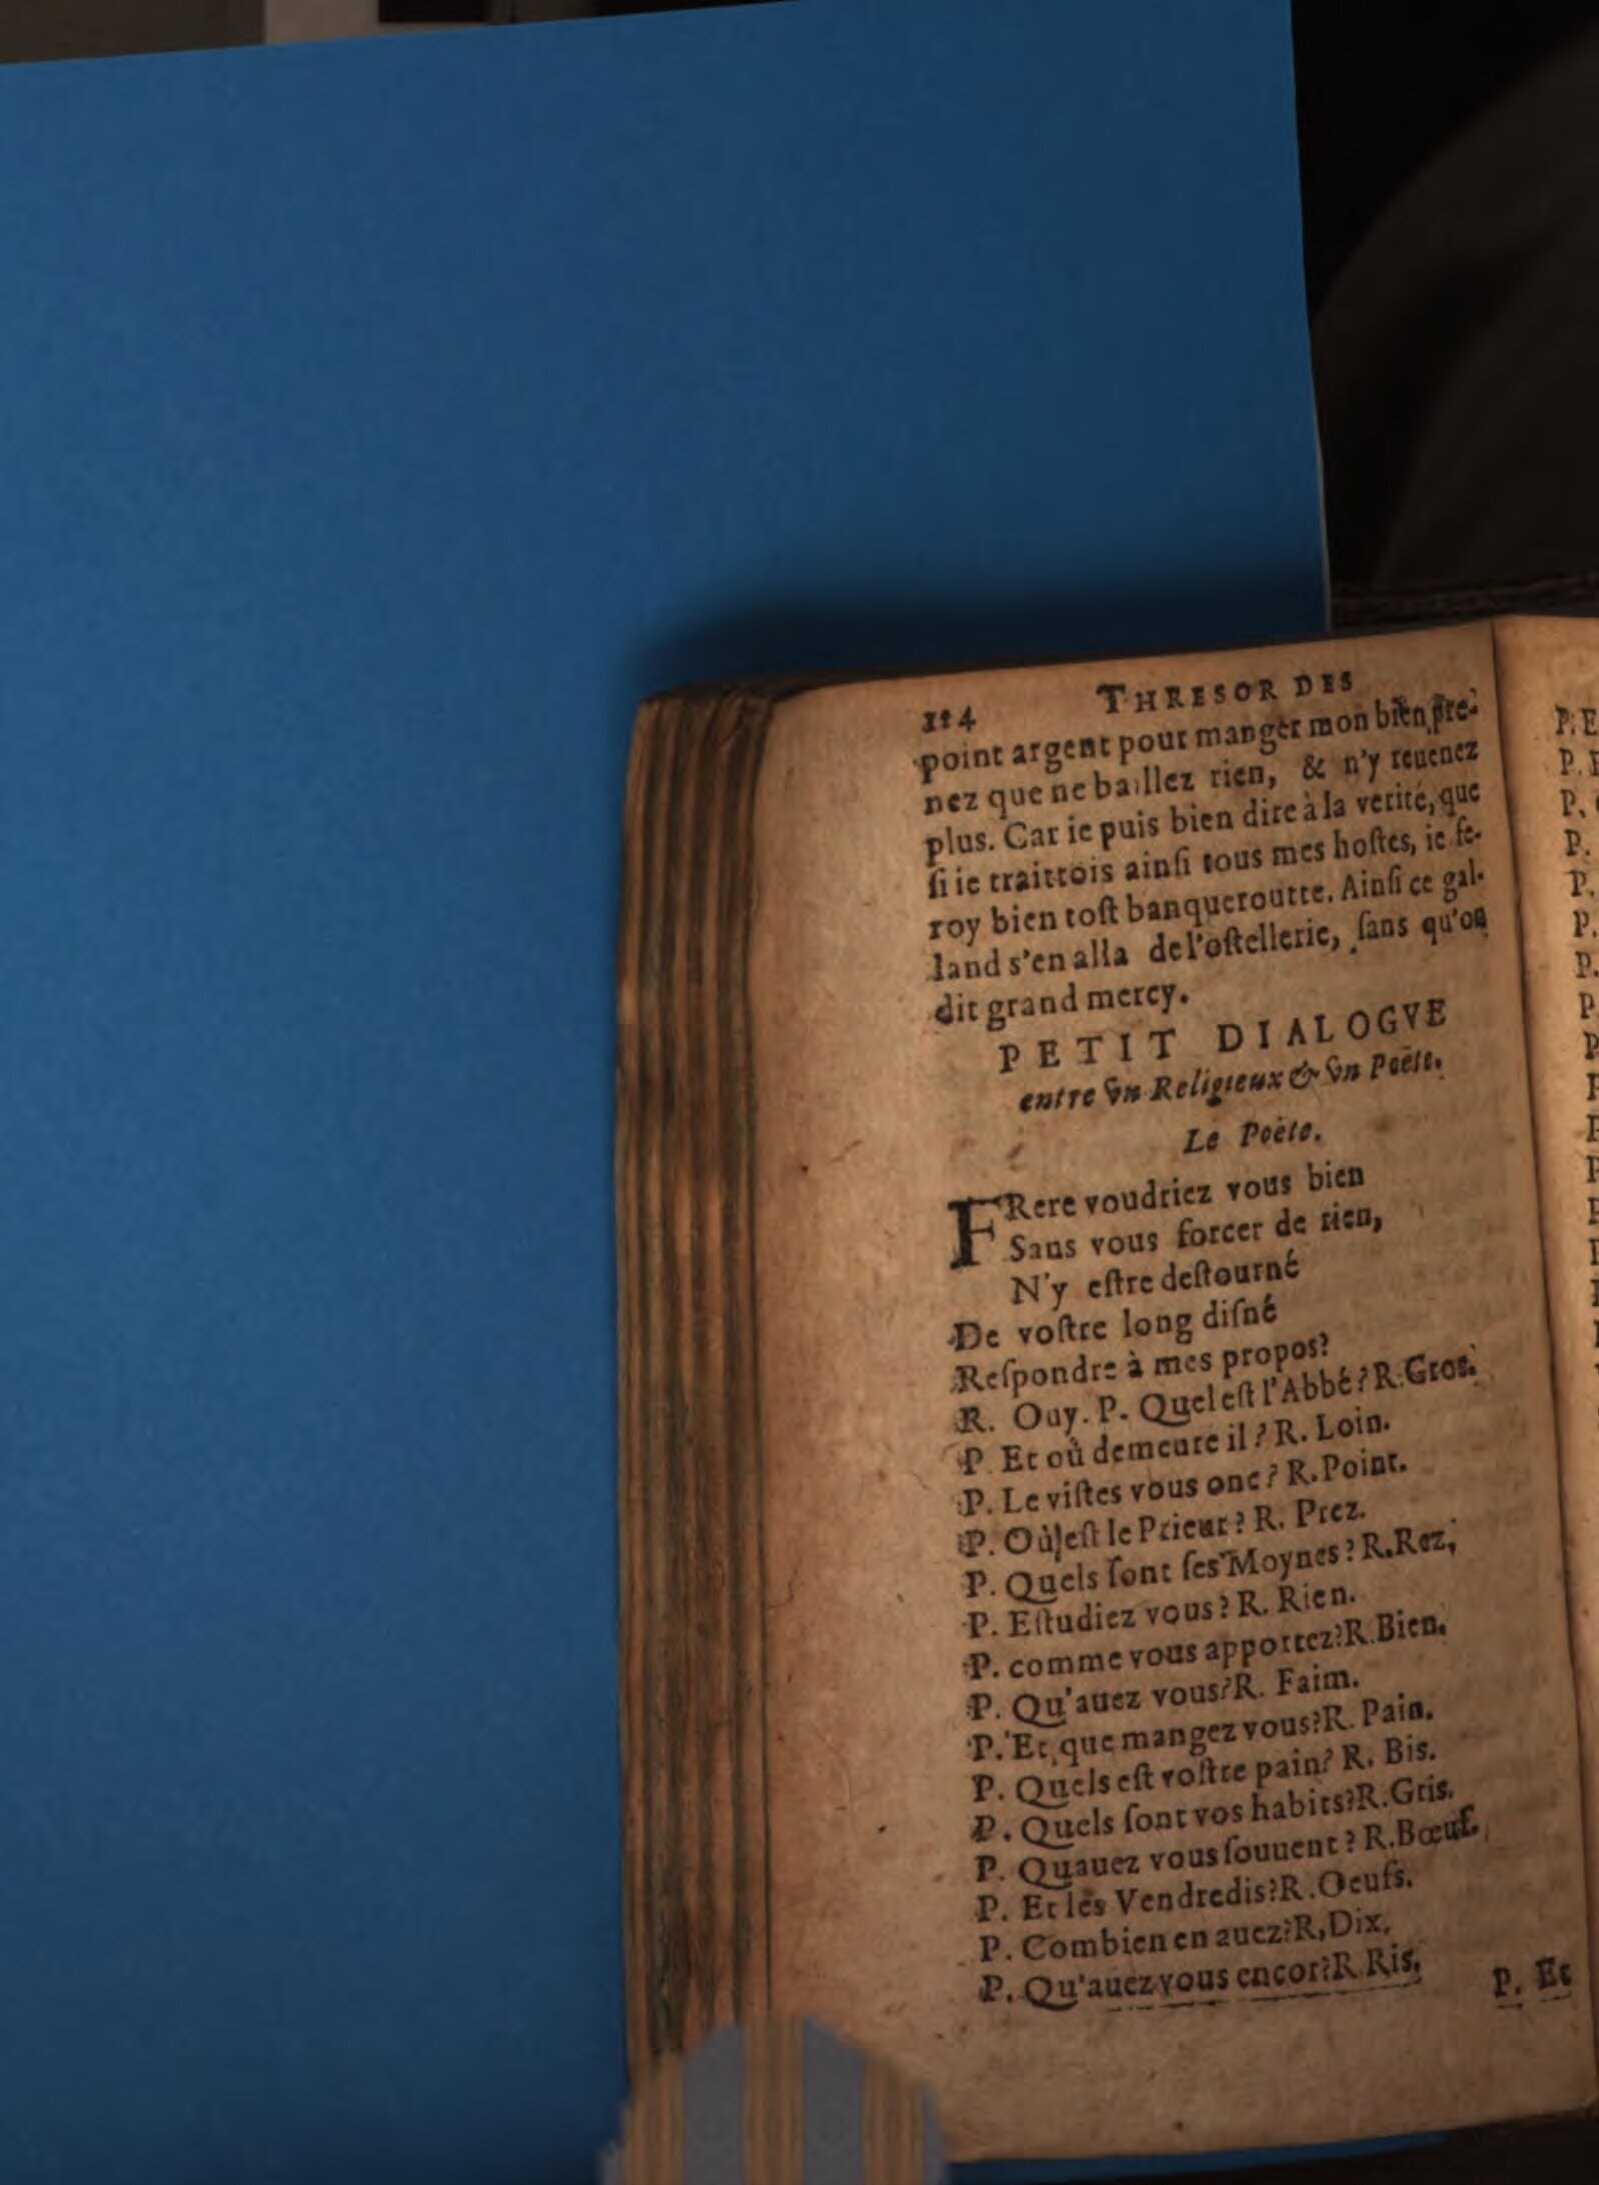 114 THRESOR DES
point argent pour manger mon bien pre-
nez que ne baillez rien, & n'y reuenez
plus. Car ie puis bien dire à la verité, que
ſi ie traittois ainſi tous mes hoſtes, ie ſe-
roy bien toſt banqueroutte. Ainſi ce gal-
land s'en alla de l'oſtellerie, ſans qu'on
dit grand mercy.
PETIT DIALOGVE
entre vn Religieux & vn Poëte.
Le Poëte.
FRere voudriez vous bien
Sans vous forcer de rien,
N'y eſtre deſtourné
De voſtre long diſné
Reſpondre à mes propos?
R. Ouy. P. Quel eſt l'Abbé? R. Gros.
P Et où demeure il? R. Loin.
P. Le viſtes vous onc? R. Point.
P. Où eſt le Prieur? R. Prez.
P. Quels ſont ſes Moynes? R. Rez,
P. Eſtudiez vous? R. Rien.
P. comme vous apportez? R. Bien.
P. Qu'auez vous? R. Faim.
P. Et que mangez vous? R. Pain.
P. Quels eſt voſtre pain? R. Bis.
P. Quels ſont vos habits? R. Gris.
P. Quauez vous ſouuent? R. Bœuf.
P. Et les Vendredis? R. Oeufs.
P. Combien en auez? R, Dix.
P. Qu'auez vous encor? R Ris.
P. Et